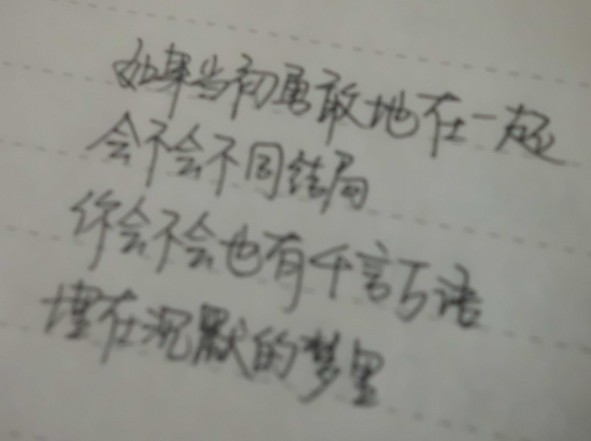 如果当初勇敢地在一起
会不会不同结局
你会不会也有千言万语
埋在沉默的梦里